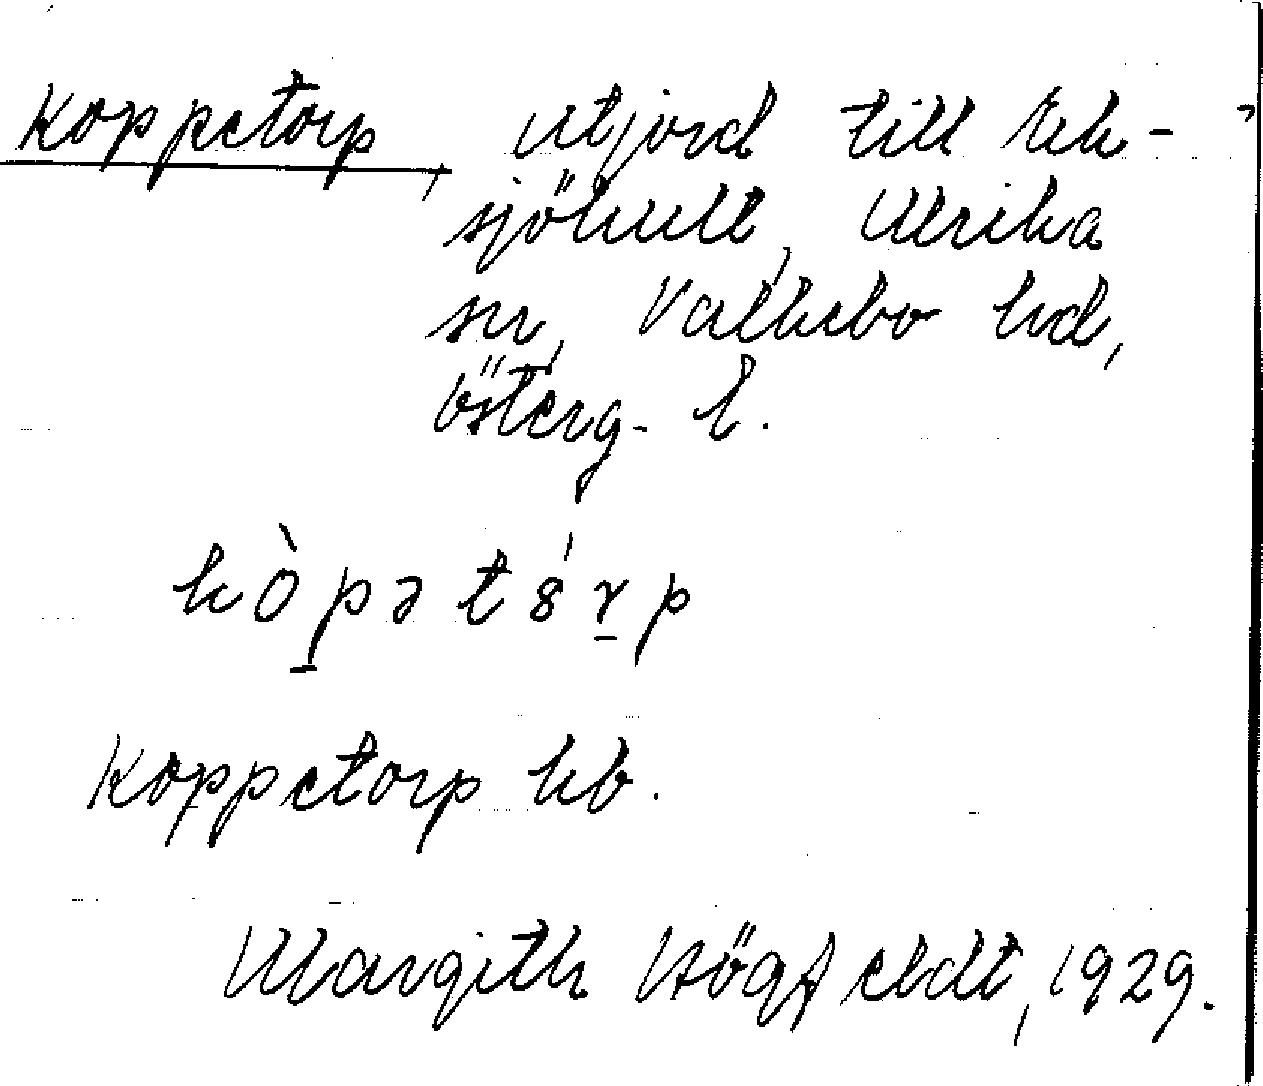 Koppetorp, utjord till Ek-
sjöhult, Ulrika
sn, Valkebo hd,
Österg. l.
kòpət8́rp
Koppetorp kb.
Margith Högfeldt, 1929.